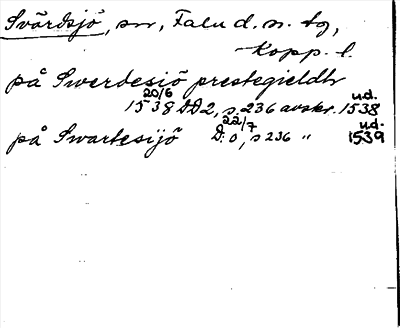 Svärdsjö, sn, Falu d. n. tg,
Kopp. l.
på Swerdesiö prestegieldh
20/6 ud.
1538 DD2, s. 236 avskr. 1538
22/7 ud.
på Swartesijö D:o, s 236 " 1539